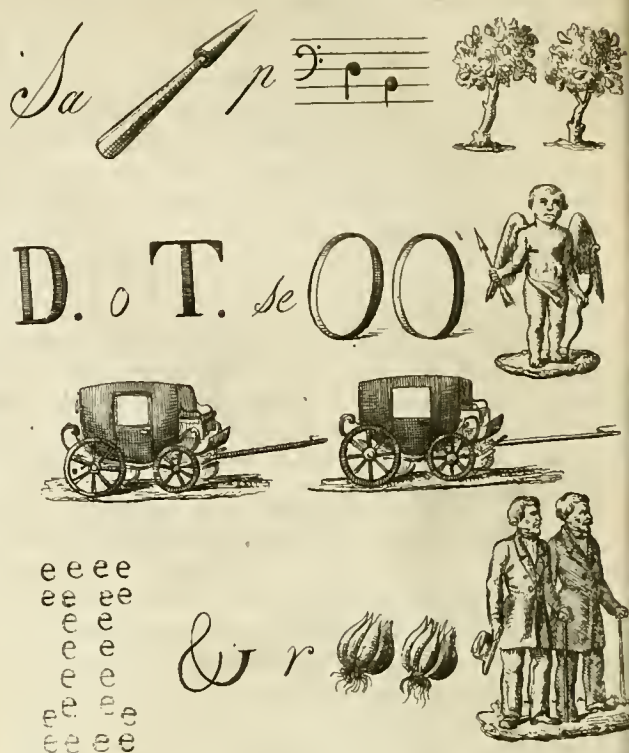 Sa p
D. o T. se '
e e e e
ee ee
e e
e e
e e & r
e e
e e e e
ee ee